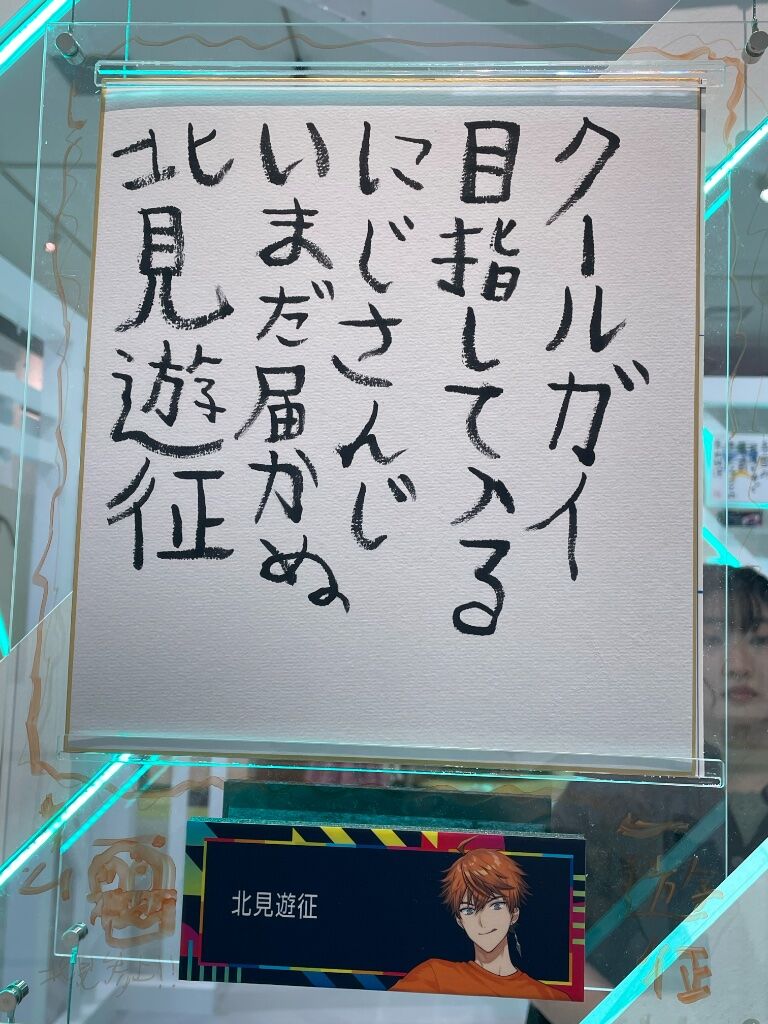 クールガイ
目指して入る
にじさんじ
いまだ届かぬ
北見遊征
北見遊征